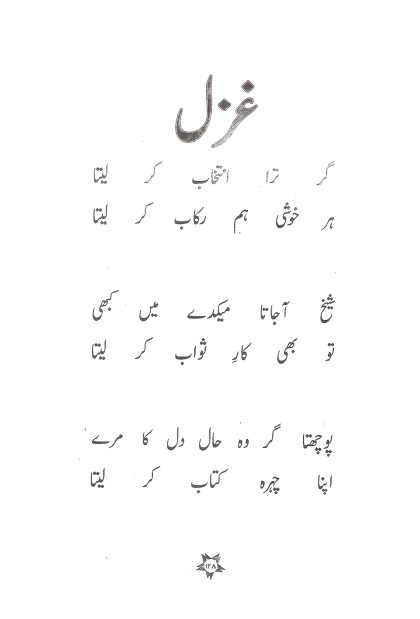 غزل
گر ترا انتخاب کر لیتا
ہر خوشی ہم رکاب کر لیتا
شیخ آجاتا میکدے میں کبھی
تو بھی کارِ ثواب کر لیتا
پوچھتا گر وہ حال دل کا مرے
اپنا چہرہ کتاب کر لیتا
۱۲۸